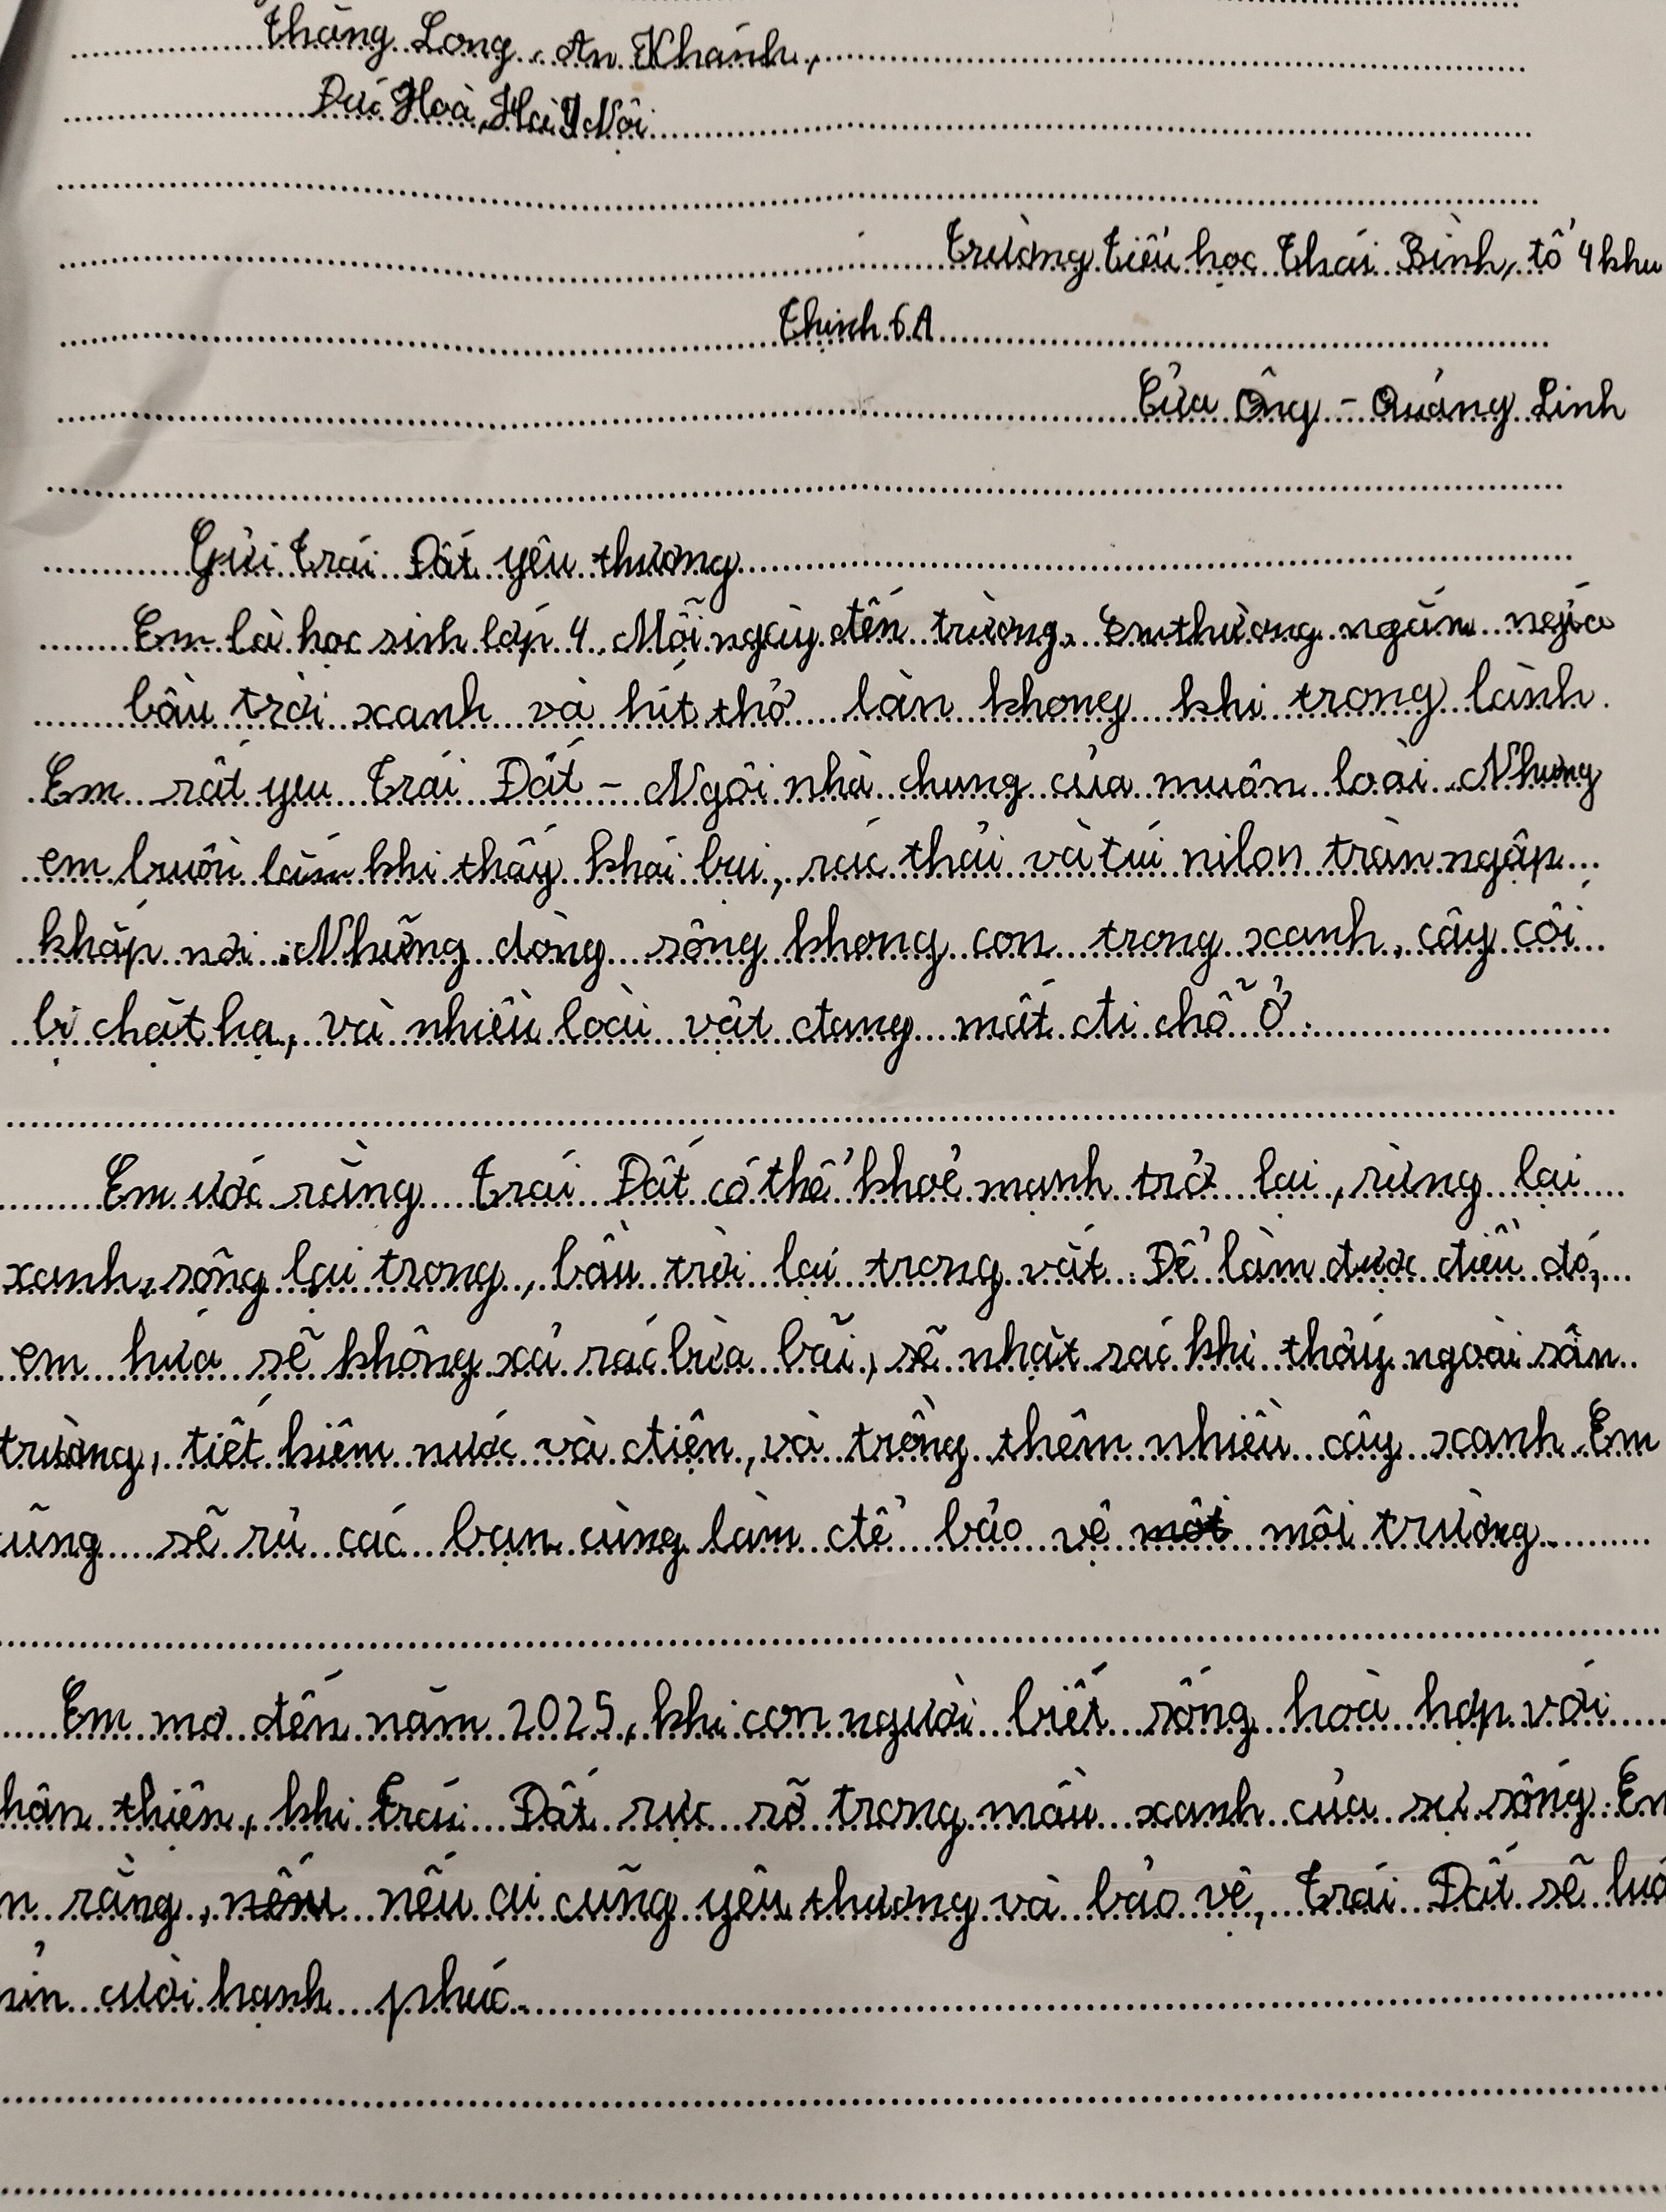 Thăng Long, An Khánh,
Đức Hoà, Hà Nội
Trường tiểu học Thái Bình, tổ 4 khu
Thịnh 6A
Cửa Ông - Quảng Linh
Gửi Trái Đất yêu thương
Em là học sinh lớp 4. Mỗi ngày đến trường. Em thường ngắm
bầu trời xanh và hít thở làn khong khi trong lành.
Em rất yeu Trái Đất - Ngôi nhà chung của muôn loài. Nhưng
em buồn lắm khi thấy khói bụi, rác thải và túi nilon tràn ngập
khắp nơi. Những dòng sông khong con trong xanh, cây cối
bị chặt hạ, và nhiều loài vật đang mất đi chỗ ở.
Em ước rằng Trái Đất có thể khoẻ mạnh trở lại, rừng lại
xanh, sông lại trong, bầu trời lại trong vắt. Để làm được điều đó,
em hứa sẽ không xả rác bừa bãi, sẽ nhặt rác khi thấy ngoài sân
trường, tiết kiệm nước và điện, và trồng thêm nhiều cây xanh. Em
ũng sẽ rủ các bạn cùng làm để bảo vệ môi trường.
Em mơ đến năm 2025, khi con người biết sống hoà hợp với
hân thiện, khi Trái Đất rực rỡ trong mầu xanh của sự sống. Em
n rằng, nếu ai cũng yêu thương và bảo vệ, Trái Đất sẽ luô
cười hạnh phúc.